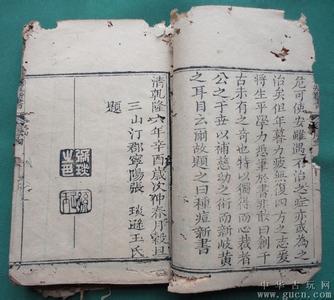 危可使安雖遇不治之症亦或為之
治矣但年暮力疲無復四方之志爰
將生平學力悉筆於書非敢曰創千
古未有之奇也特以獨得之心裁者
公之于世以補慈幼之術而新岐黃
之耳目云爾故題之曰種痘新書
清乾隆六年辛酉歲次仲春月穀旦
三山汀郡寧陽張琰遜玉氏
題
中华古玩网
www.gucn.com